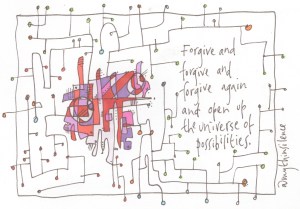 Forgive and
forgive and
forgive again
and open up
the universe of
possibilities.